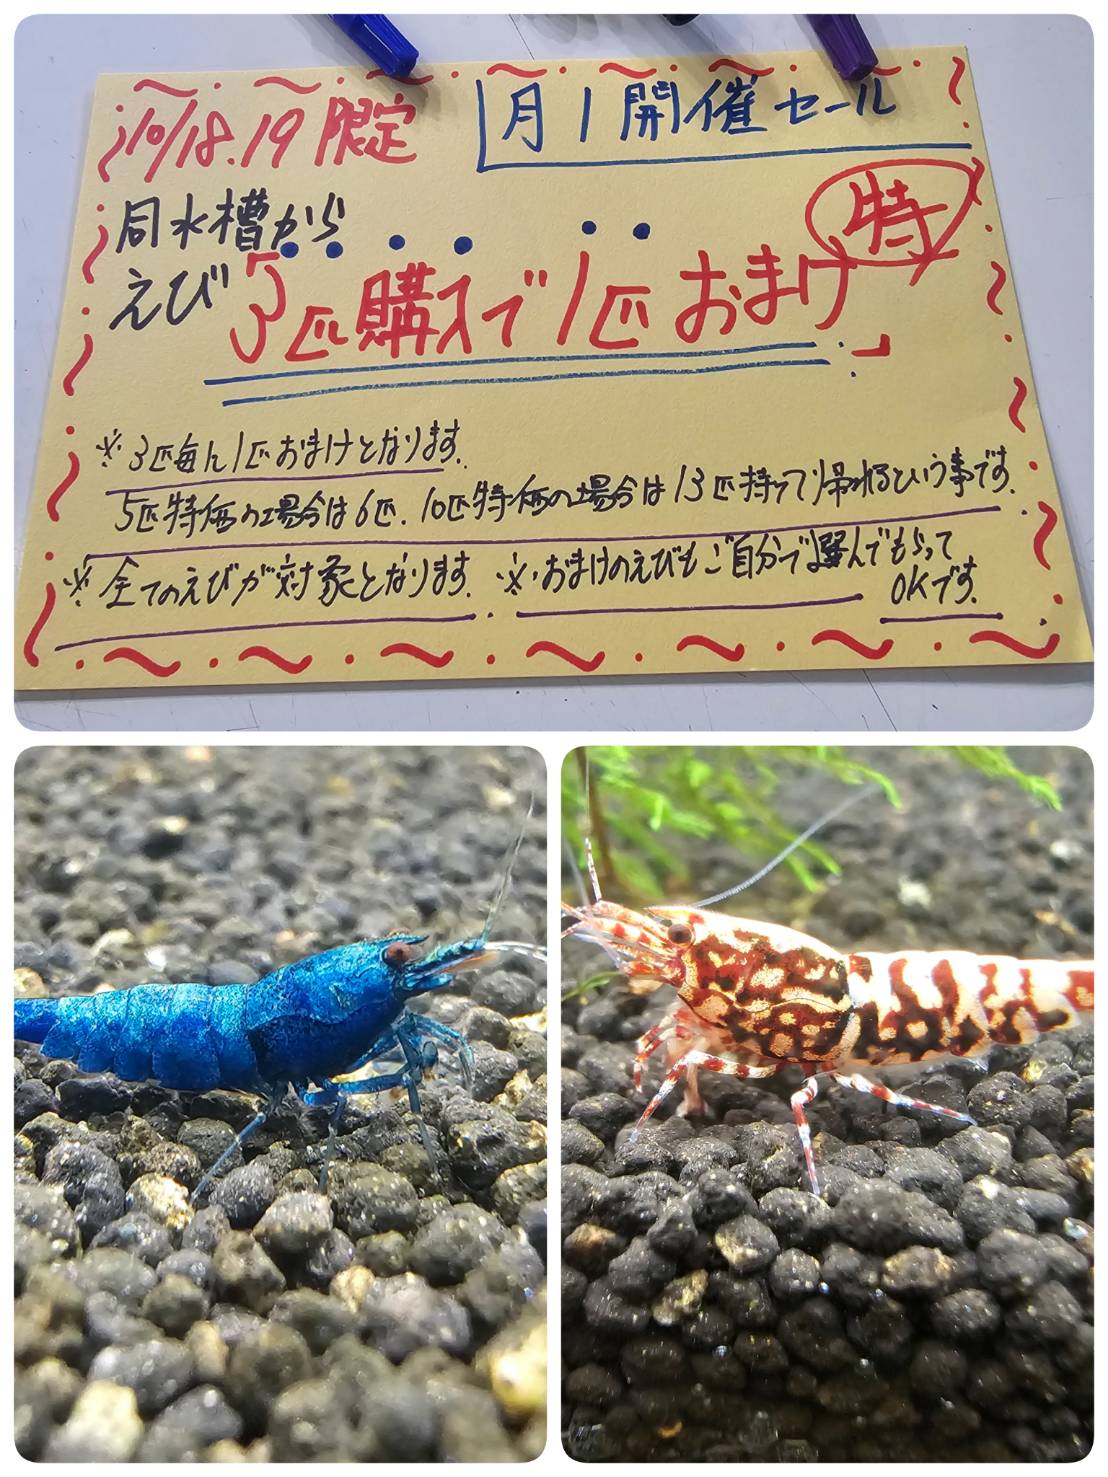 10/18.19 限定
月1開催セール
同水槽から
特
えび3匹購入で1匹おまけ
※3匹毎に1匹おまけとなります.
5匹特価の場合は6匹.10匹特価の場合は13匹持って帰れるという事です.
※全てのえびが対象となります.
※おまけのえびもご自分で選んでもらって
OKです.